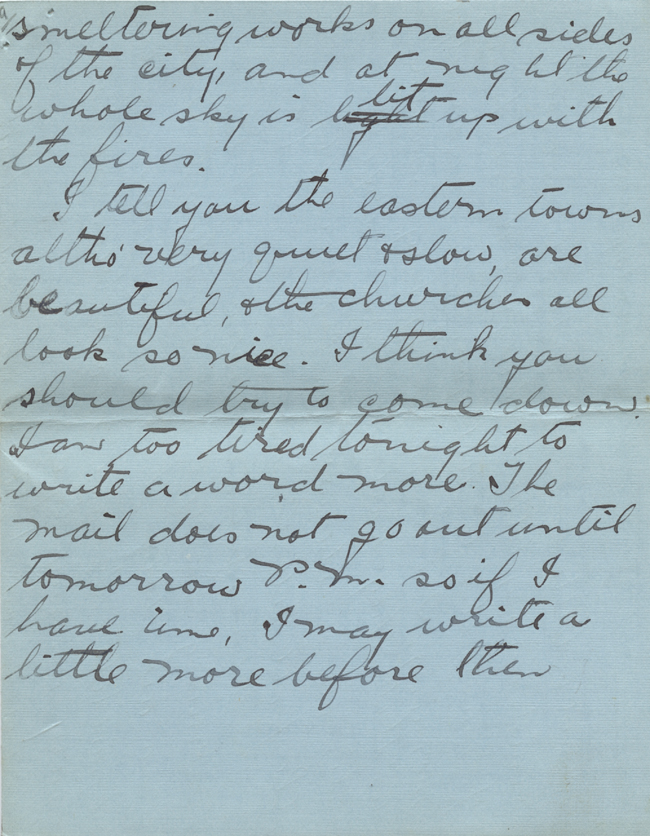 smeltering works on all sides
of the city, and at night the
whole sky is light lit up with
the fires.
I tell you the eastern towns
altho' very quiet & slow, are
beautiful, & the churches all
look so nice. I think you
should try to come down.
I am too tired tonight to
write a word more. The
mail does not go out until
tomorrow P.M. so if I
have time, I may write a
little more before then